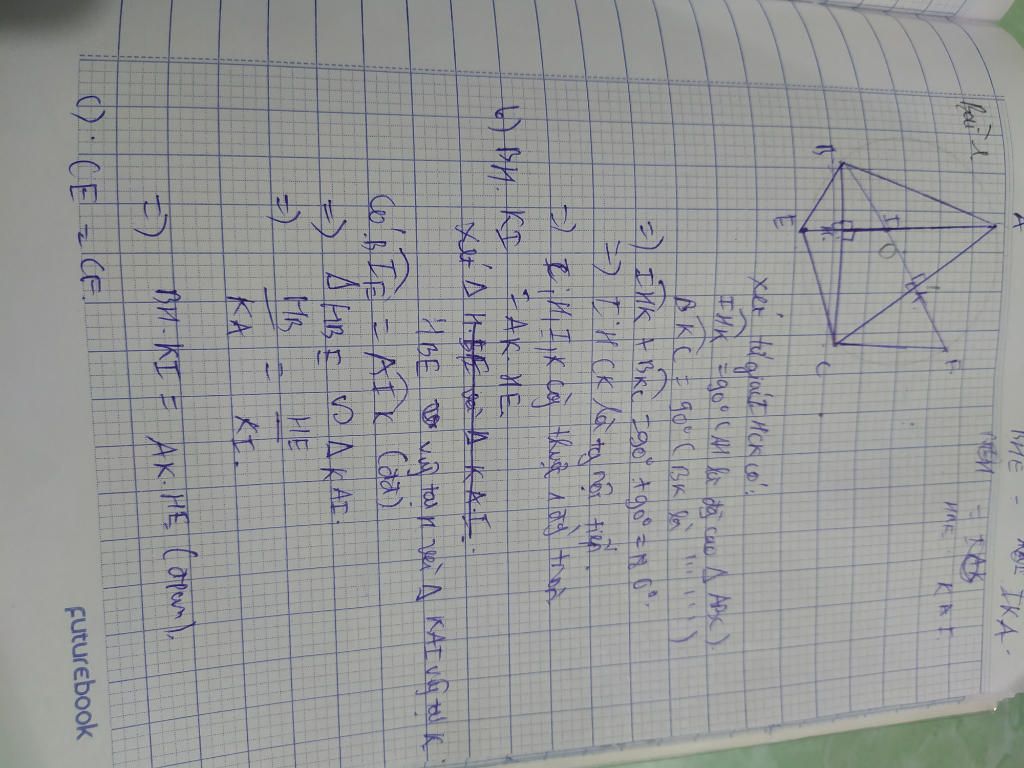 Bài 1
A
B
I
O
K
H
E
C
F
Xét tứ giác IHCK có:
IHK = 90° (AH là đg cao Δ ABC)
BKC = 90° (BK là '' '' '')
=) IHK + BKC = 90° + 90° = 180°.
=) IHCK là tg nội tiếp.
=) C; H, I, K cùng thuộc 1 đg tròn
b) BH. KI = AK. HE.
Xét Δ HBE và Δ KAI.
HBE vuông tại H với Δ KAI vuông tại K
Có: BIE = AIK (đđ)
=) Δ HBE ∽ Δ KAI.
=) HB = HE
KA KI.
=) BH. KI = AK. HE, (đpcm),
c) . CE = CF.
futurebook